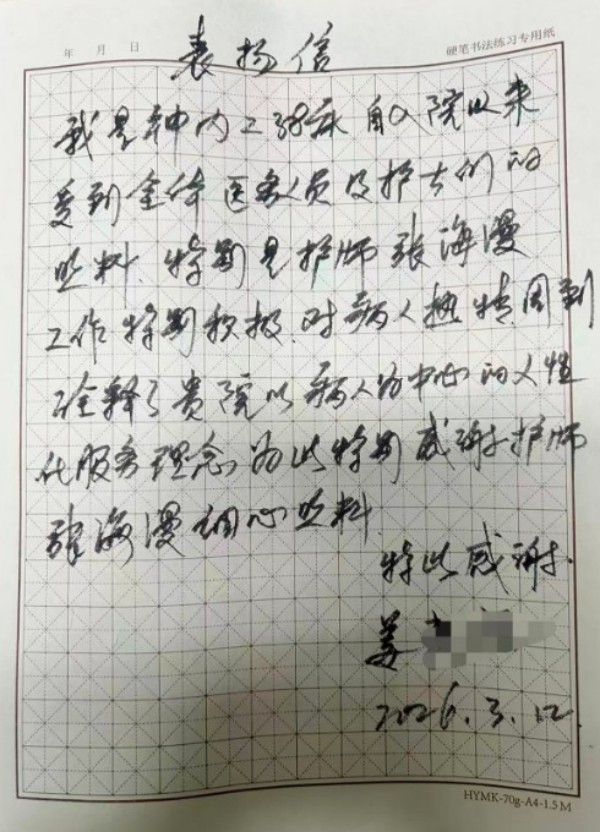 年 月 日
硬笔书法练习专用纸
表扬信
我是神内二38床自入院以来
受到全体医务人员及护士们的
照料.特别是护师张海漫
工作特别积极.对病人热情.周到
诠释了贵院以病人为中心的人性
化服务理念,为此特别感谢护师
张海漫细心照料.
特此感谢.
姜
2026.3.12
HYMK-70g-A4-1.5M